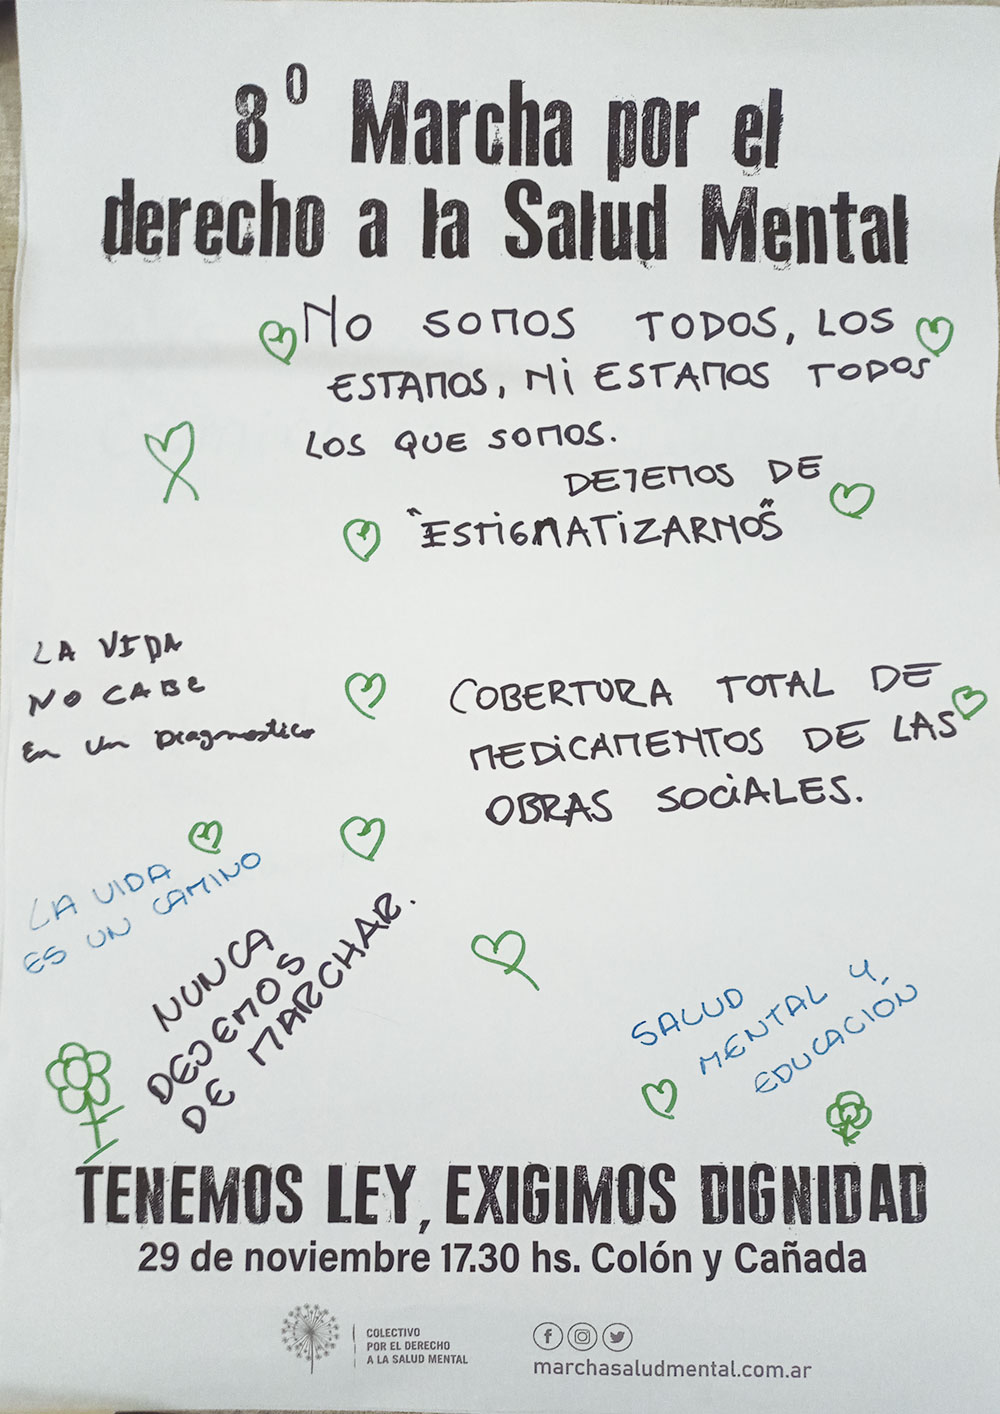 8º Marcha por el
derecho a la Salud Mental
NO SOMOS TODOS, LOS
ESTAMOS, NI ESTAMOS TODOS
LOS QUE SOMOS.
DEJEMOS DE
"ESTIGMATIZARNOS"
LA VIDA
NO CABE
En un Diagnostico
COBERTURA TOTAL DE
MEDiCAMENTOS DE LAS
OBRAS SOCiALES.
LA VIDA
ES UN CAMINO
NUNCA
DEJEMOS
DE MARCHAR.
SALUD
MENTAL Y
EDUCACIÓN
TENEMOS LEY, EXIGIMOS DIGNIDAD
29 de noviembre 17.30 hs. Colón y Cañada
COLECTIVO
POR EL DERECHO
A LA SALUD MENTAL
marchasaludmental.com.ar